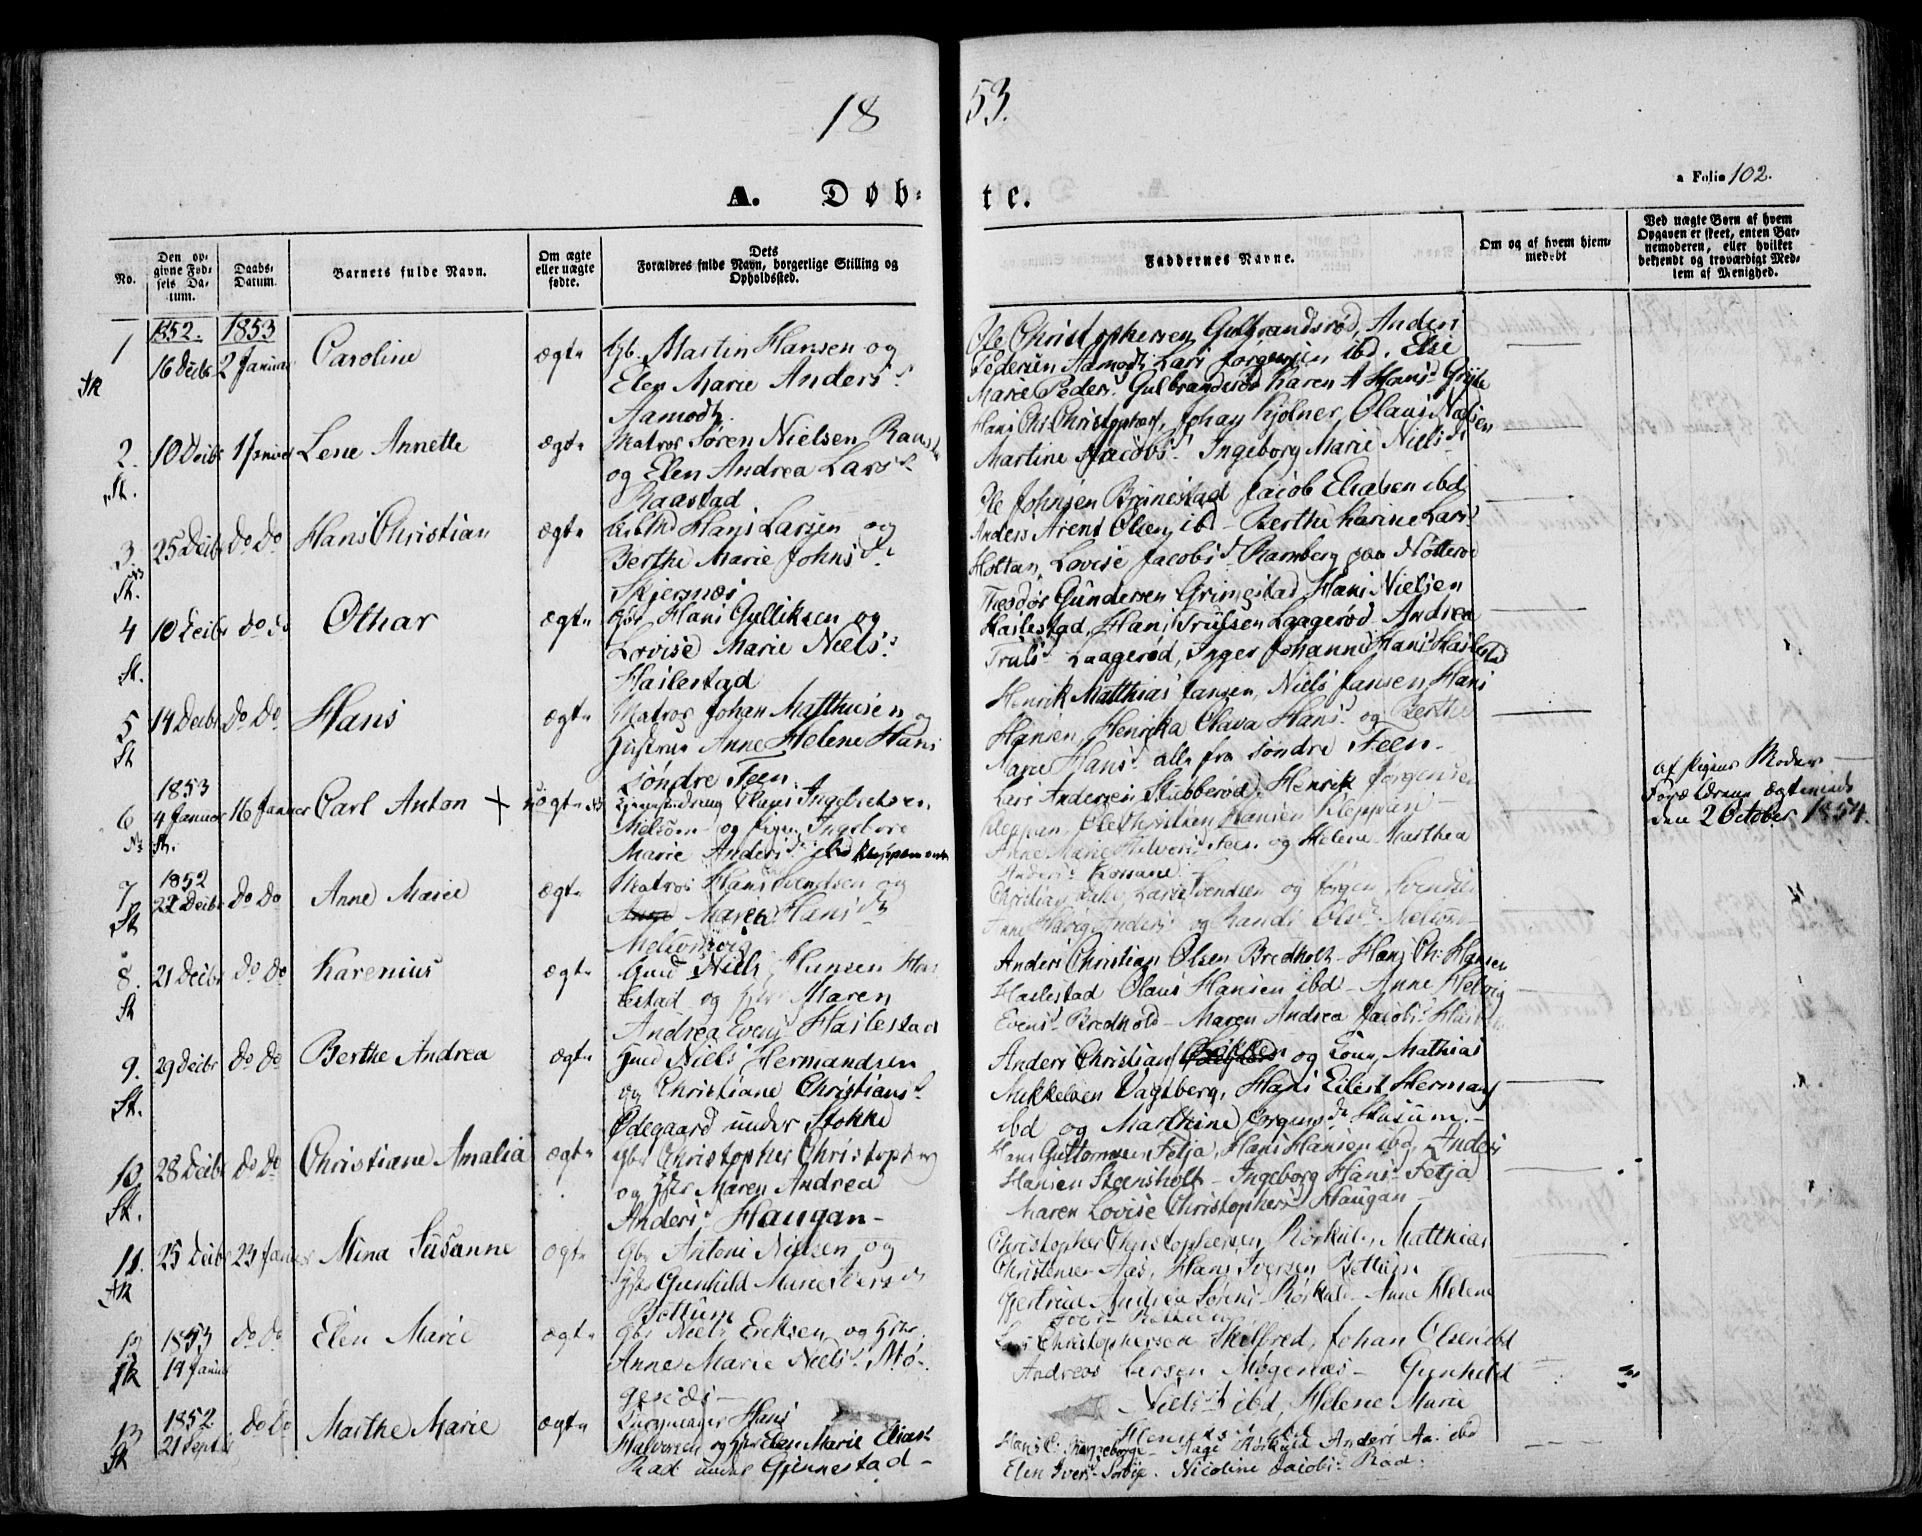 1853.
A. Døbte.
a Folio 102.
No.
Den opgivne Fødsels Datum.
Daabs-Datum.
Barnets fulde Navn.
Om ægte eller uægte fødte.
Dets Forældres fulde Navn, borgerlige Stilling og Opholdssted.
Faddernes Navne.
Om og af hvem hjemmedøbt
Ved uægte Børn af hvem Opgaven er skeet, enten Barnemoderen, eller hvilket bekjendt og troværdigt Medlem af Menighed.
1852. 1853
1 16 Decbr 2 Januar Caroline ægte Gb. Martin Hansen og
Elen Marie Anders d.
Aamodt.
Ole Christophersen Gulbrandsrød, Anders
Pedersen Aamodt, Lars Jørgensen ibd. Else
Marie Peders d. Gulbrandsrød Karen A Hans d.
2. 10 Decbr 1 Januar Lene Annette ægte Matros Søren Nielsen
og Elen Andrea Lars d.
Raastad
Hans Chr. Christophers, Johan Kjølner, Olaus Nielsen
Martine Jacobs d. Ingeborg Marie Niels d.
3. 25 Decbr do do Hans Christian ægte Hans Larsen og
Berthe Marie Johns d.
Skjersnæs
Ole Johnsen Brunestad Jacob Eliasen ibd
Anders Arent Olsen ibd - Berthe Karine Lars d.
Holtan, Lovise Jacobs d. Ramberg paa Nøtterø
4 10 Decbr do do Othar ægte Gbr Hans Gulliksen og
Lovise Marie Niels d.
Haslestad
Theodor Gundersen Grimestad, Hans Nielsen
Haslestad, Hans Trulsen Laagerød - Andrea
Truls d. Laagerød, Inger Johanne Hans d. Haslestad
5 14 Decbr do do Hans ægte Matros Johan Matthisen og
Hustrue Anne Helene Hans
søndre Feen.
Henrik Matthias Jansen, Niels Jansen, Hans
Hansen, Henrika Olava Hans d. og Berthe
Marie Hans d. alle fra søndre Feen -
1853
6 4 Januar 16 Januar Carl Anton + uægte
Olaus Ingebretsen
Melsom - og Pigen Ingeborg
Marie Anders d.
Lars Andersen Stubberød, Henrik Jørgensen
Kleppan, Ole Christian Hansen Kleppan -
Anne Marie Halvors d. Feen og Helene Marthea
Anders d.
af Pigens Moder -
Forældrene ægteviede
den 2 October 1854.
1852
7 22 Decbr do do Anne Marie ægte Matros Hans Svendsen og
Maren Hans d.
Melsomvig
Lars Svendsen og Jørgen Svendsen
Anne Anders d. og Randi Ols d. Melsom -
8. 21 Decbr do do Karenius ægte Gmd Niels Hansen Has
lestad og Hstr Maren
Andrea Evens Haslestad
Anders Christian Olsen Bredholt - Hans Ch: Hansen
Haslestad Olaus Hansen ibd - Anne Helvig
Evens d. Bredhold - Maren Andrea Jacobs d.
9. 29 Decbr do do Berthe Andrea ægte Hmd Niels Hermandsen
og Christiane Christians d.
Ødegaard under Stokke
Anders Christian og Kone, Mathias
Mikkelsen Vagsberg, Hans Eilert Hermans
ibd og Marthine Jørgens d. Husum. -
10. 28 Decbr do do Christiane Amalia ægte Gbr Christopher Christophers
og Hstr Maren Andrea
Anders d. Haugan -
Hans Guttormsen Fetja, Hans Hansen ibd, Anders
Hansen Steensholt - Ingeborg Hans d. Fetja
Maren Lovise Christophers d. Haugan -
11. 25 Decbr 23 Januar Mina Susanne ægte Gbr Antoni Nielsen og
Hstr Gunhild Marie Ivers d.
Bottum
Christopher Christophersen Rørkul, Matthias
Christensen Aas, Hans Iversen Bottum
Gjertrud Andrea Sørens d. Rørkul - Anne Helene
Ivers d. Bottum
12 1853 14 Januar do do Elen Marie ægte Gbr Niels Eriksen og Hstr.
Anne Marie Niels d. Mø-
genæs -
Lars Christophersen Skelfred, Johan Olsen ibd
Andreas Iversen Møgenæs - Gunhild
Niels d. ibd, Helene Marie
13 1852 21 Septbr do do Marthe Marie ægte Hans
Halvorsen og Hstr Elen Marie Elias d.
Rad under Gjennestad -
Hans C. - Aage Rørkuld Anders Aa. ibd
Elen Ivers d. - Nicoline Jacobs d. Rad.